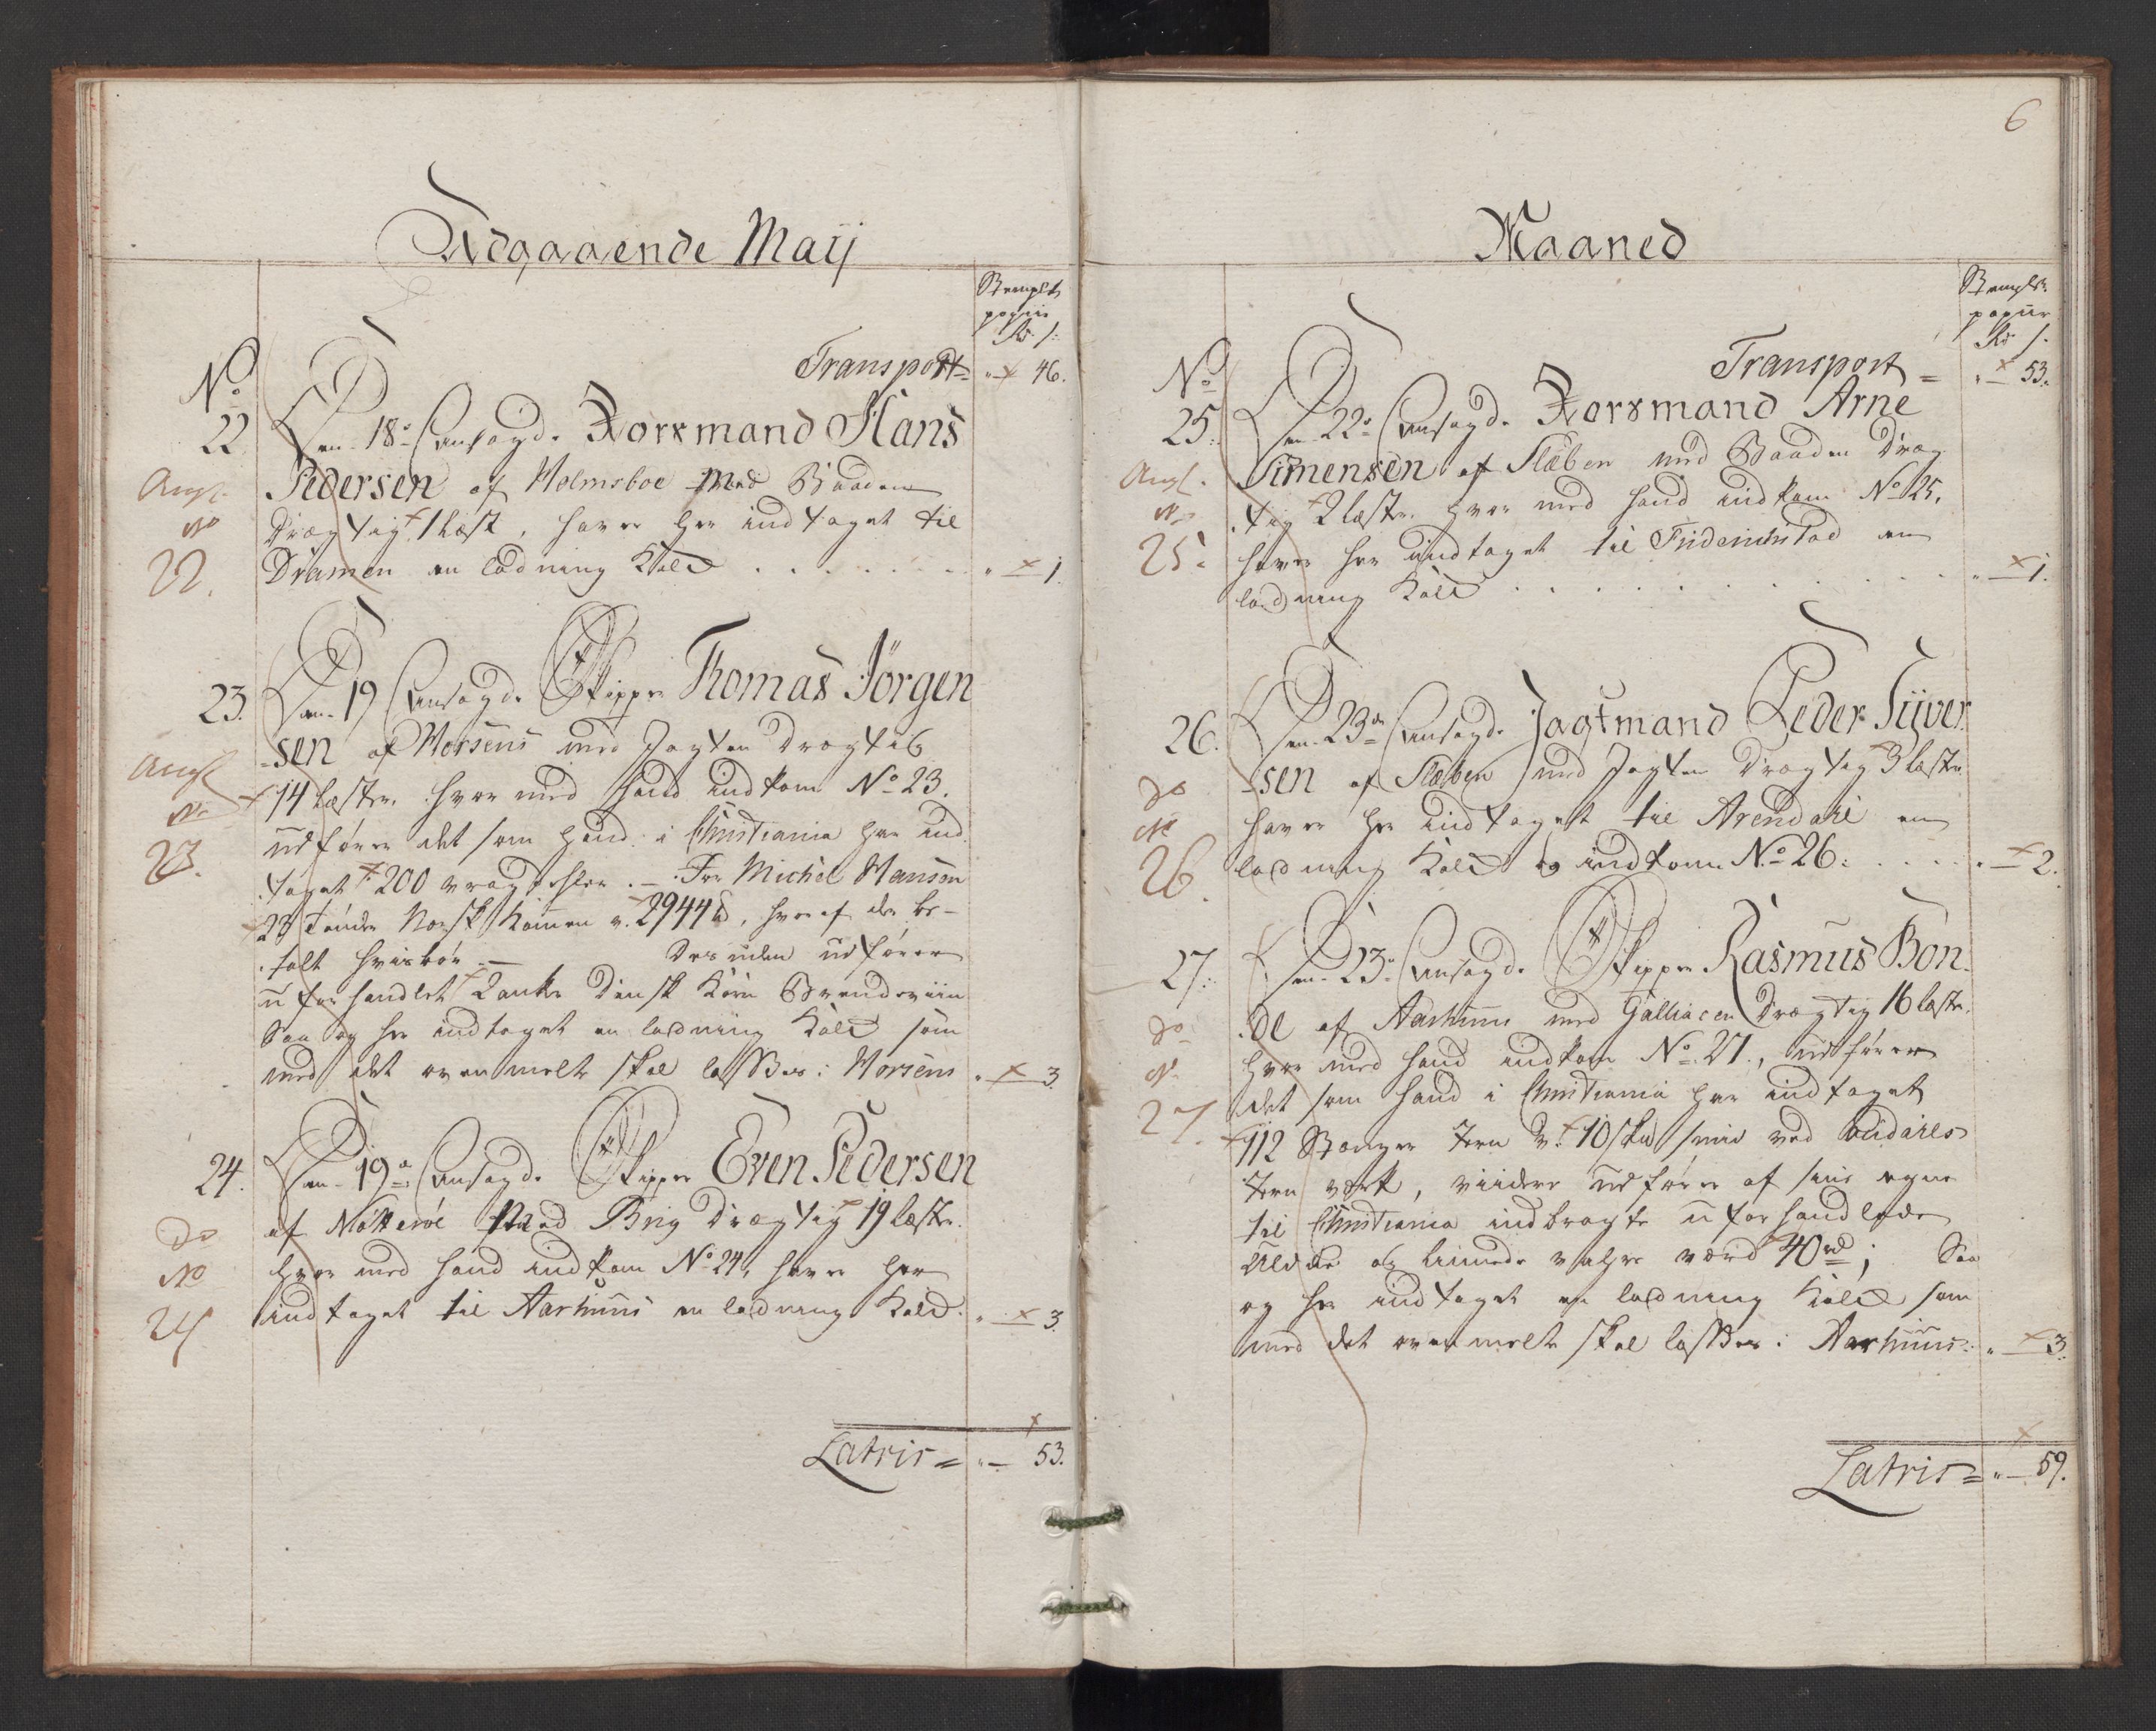 Udgaaende Maij
Stemplet
papiir
Rd. s:
Transport = " 46.
No
22 Den 18de Ansagde Norxmand Hans
Pedersen af Holmsboe med Baaden
Drægtig 1 læst, haver her indtaget til
Dramen en ladning Kald . . . . . . . " 1.
Angl.
No
22.
23. Den 19 Ansagde Skipper Thomas Jörgen
-sen af Horsens med Jagten Drægtig
14 læster hvormed hand indkom No 23.
udförer det som hand i Christiania har ind
taget 200 . - For Michel Hansen
23 Tönder Norsk Kommen v. 2944 ℔, hvoraf der be-
talt - Desuden udförer
uforhandlet 2 anker Dansk Korn Brendeviin
Saa og her indtaget en ladning Kald som
med det ovenmelte skal losses i Horsens " 3.
Angl
No
23.
24. Den 19de Ansagde Skipper Even Pedersen
af Nötteröe med Brig Drægtig 19 læster
hvormed hand indkom No 24, haver her
indtaget til Aarhuus en ladning Kald. " 3.
Do
No
24
Latris = " - 53.
6
Maaned
Stemplet
papiir
Rd s.
Transport = " - 53.
No
25. Den 22de Ansagde Norxmand Arne
Simensen af Slæben med Baaden Dræg
tig 2 læster hvormed hand indkom No 25.
haver her indtaget til Friderichstad en
ladning Kald . . . . . . . " 1.
Angl.
No
25.
26. Den 23de Ansagde Jagtmand Peder Sijver
-sen af Slæben med Jagten Drægtig 3 læster
haver her indtaget til Arendahl en
ladning Kald og indkom No 26. . . . . . " 2.
Do
No
26.
27. Den 23de Ansagde Skipper Rasmus Bon
de af Aarhuus med Galliacen Drægtig 16 læster.
hvormed hand indkom No. 27., udförer
det som hand i Christiania har indtaget
112 Stanger Jern v. 10 smid ved
Jern værk, viidere udförer af sine egne
til Christiania indbragte uforhandlede
og værd 40 rd; Saa
og her indtaget en ladning Kald som
med det ovenmelte skal losses i Aarhuus. " 3.
Do
No
27.
Latris = " - 59.